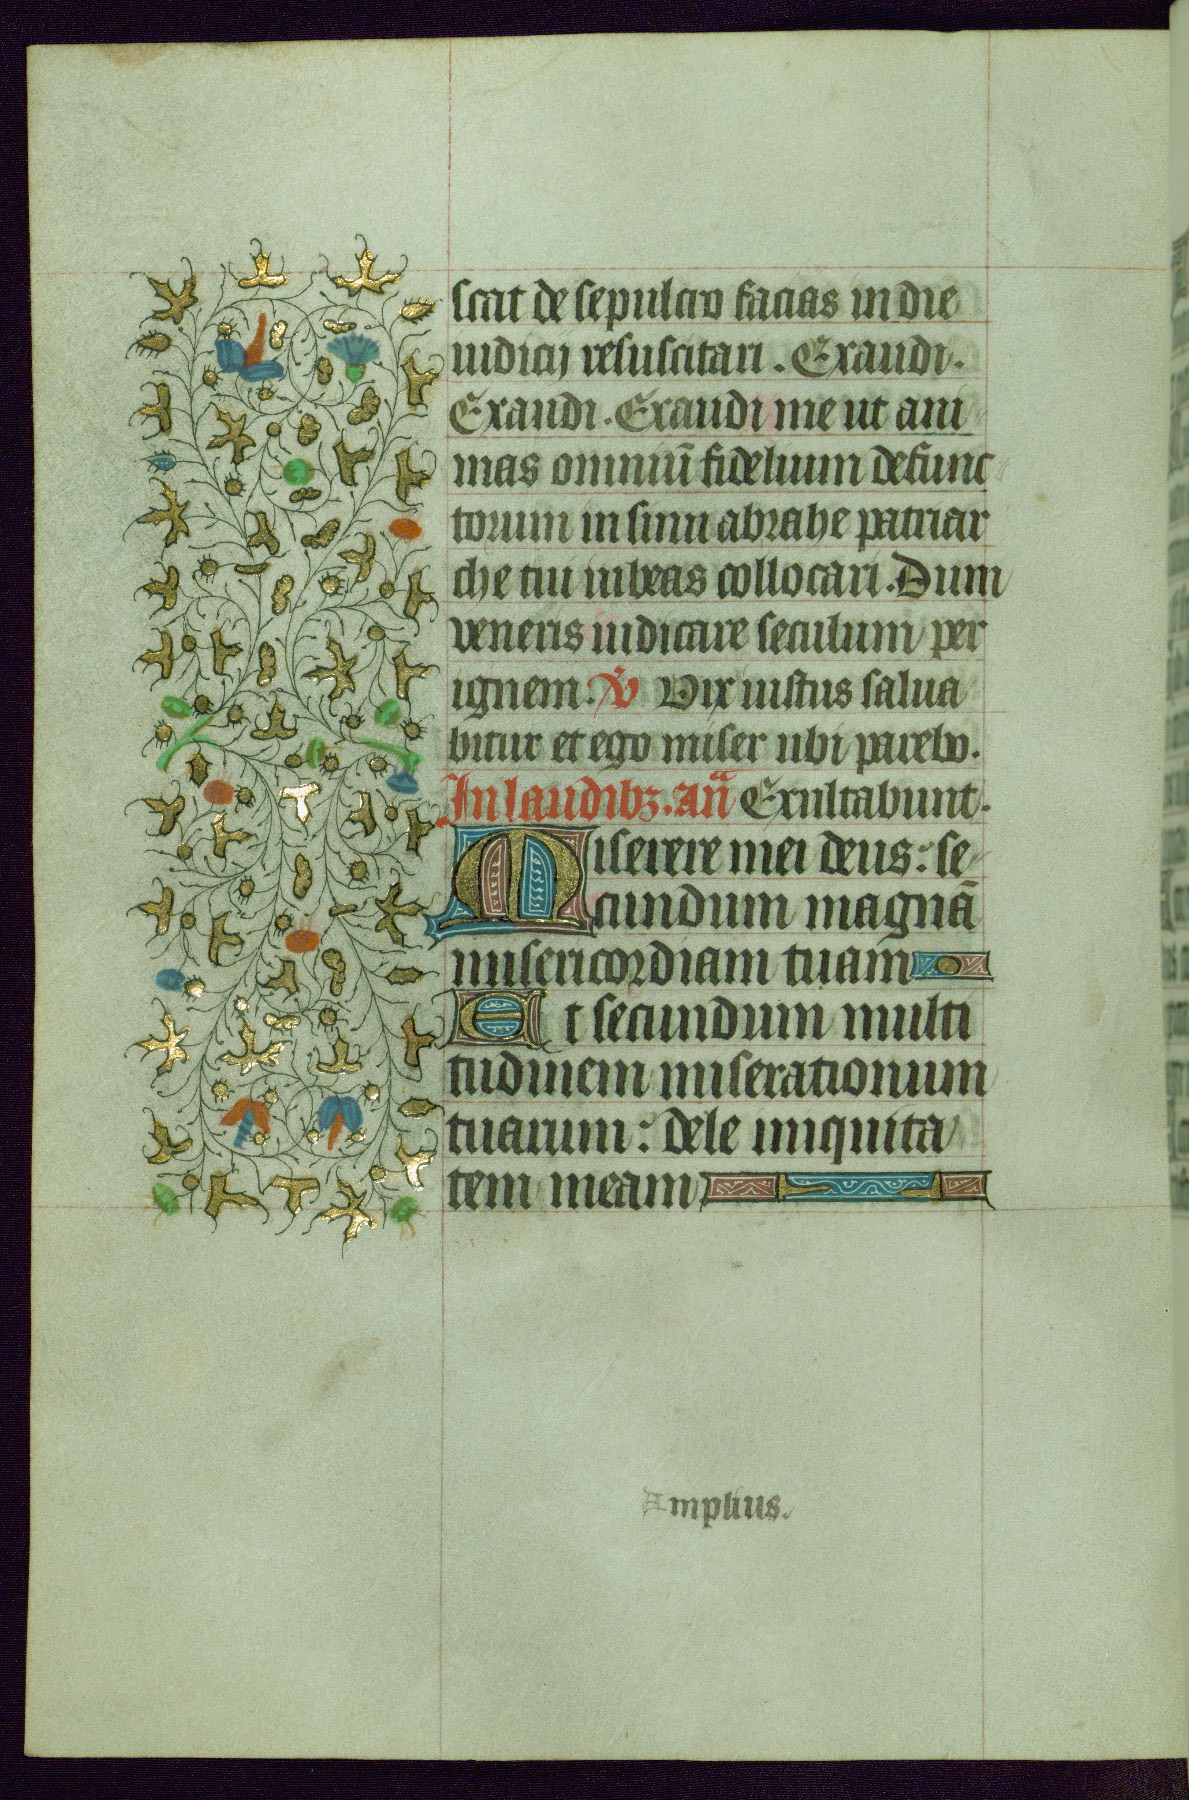 scat de sepulcro facias in die
iudicij resuscitari. Exaudi.
Exaudi. Exaudi me ut ani
mas omniũ fidelium defunc
torum in sinu abrahe patriar
che tui iubeas collocari. Dum
veneris iudicare seculum per
ignem. V̉ Vix iustus salua
bitur et ego miser ubi parebo.
In laudibꝫ. an̄ Exultabunt.
Miserere mei deus: se
cundum magnã
misericordiam tuam
Et secundum multi
tudinem miserationum
tuarum: dele iniquita
tem meam
Amplius.